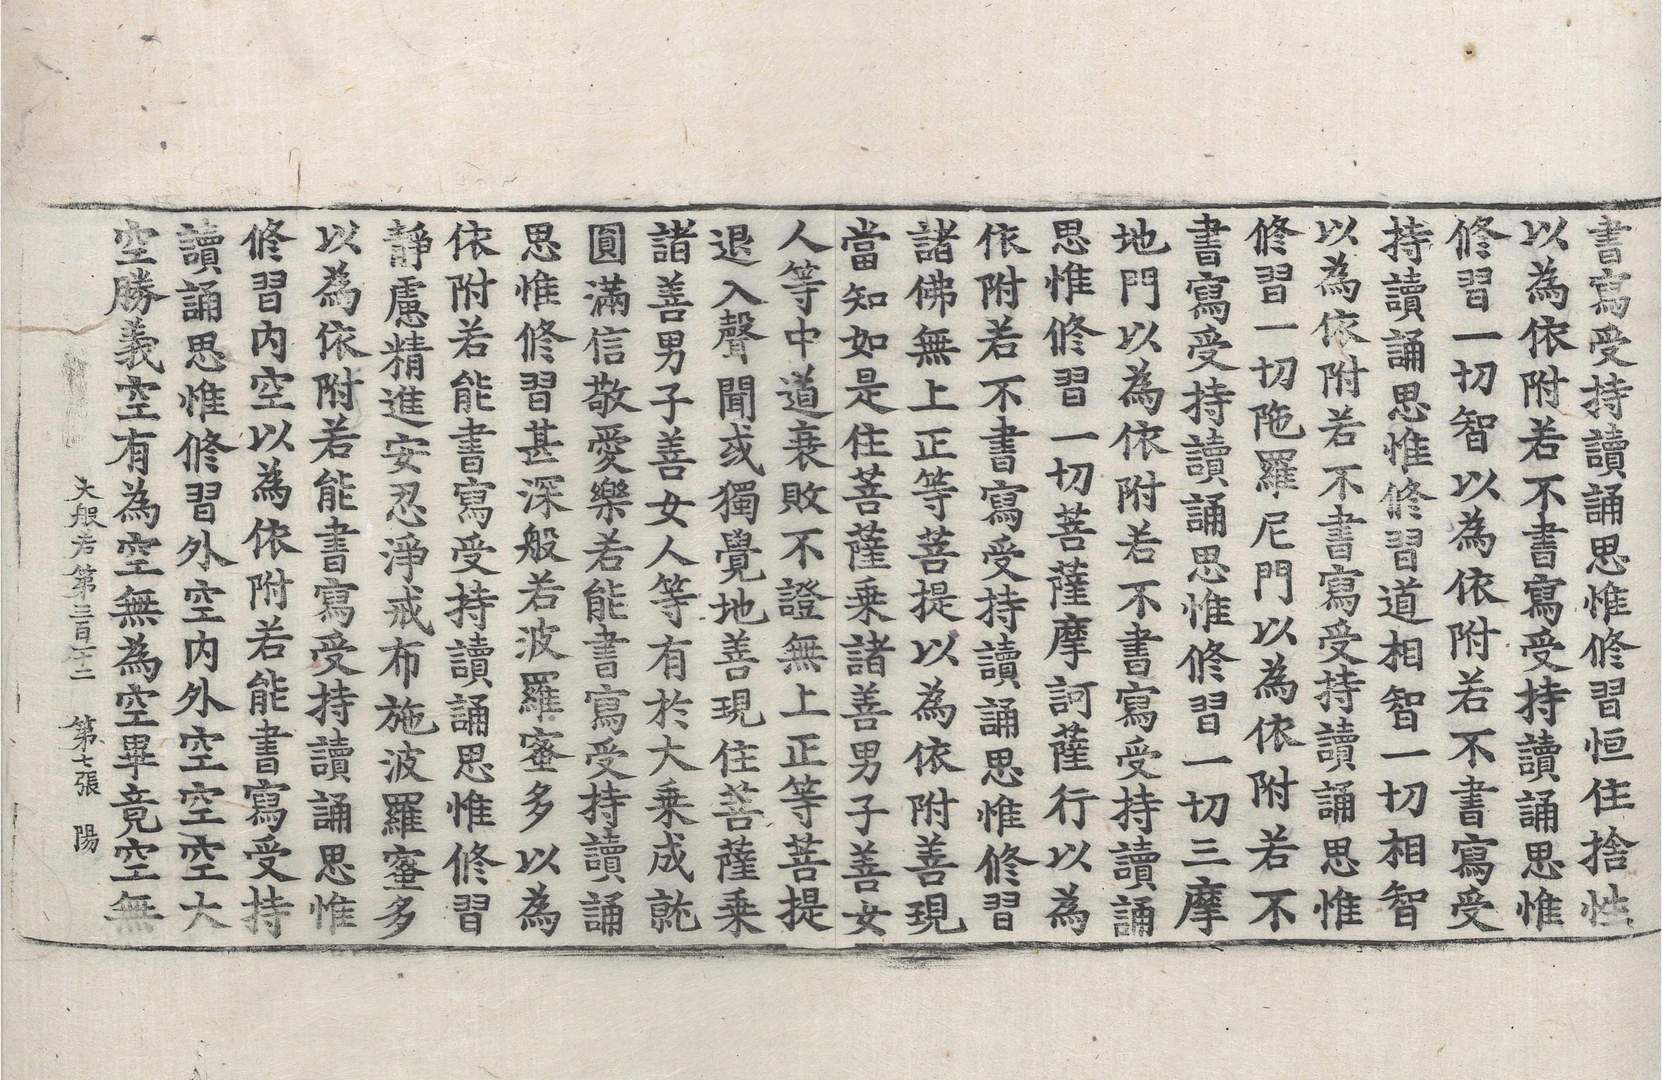 書寫受持讀誦思惟修習恒住捨性
以為依附若不書寫受持讀誦思惟
修習一切智以為依附若不書寫受
持讀誦思惟修習道相智一切相智
以為依附若不書寫受持讀誦思惟
修習一切陁羅尼門以為依附若不
書寫受持讀誦思惟修習一切三摩
地門以為依附若不書寫受持讀誦
思惟修習一切菩薩摩訶薩行以為
依附若不書寫受持讀誦思惟修習
諸佛無上正等菩提以為依附善現
當知如是住菩薩乘諸善男子善女
人等中道衰敗不證無上正等菩提
退入聲聞或獨覺地善現住菩薩乘
諸善男子善女人等有於大乘成就
圓滿信敬愛樂若能書寫受持讀誦
思惟修習甚深般若波羅蜜多以為
依附若能書寫受持讀誦思惟修習
靜慮精進安忍淨戒布施波羅蜜多
以為依附若能書寫受持讀誦思惟
修習內空以為依附若能書寫受持
讀誦思惟修習外空內外空空空大
空勝義空有為空無為空畢竟空無
大般若第三百十二 第七張 陽